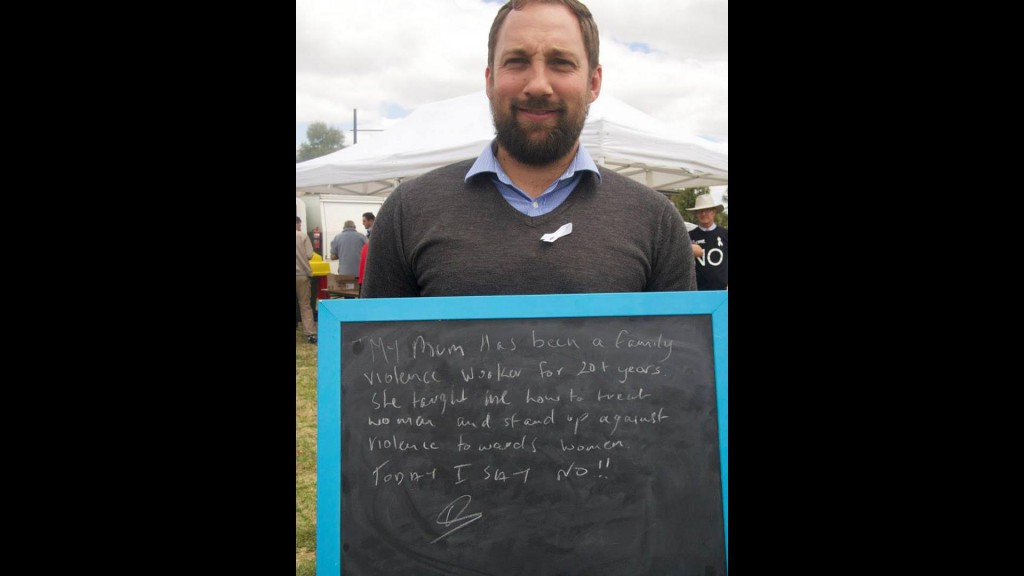 My Mum Has been a family
violence worker for 20+ years
She taught me how to treat
woman and stand up against
violence towards women
TODAY I SAY NO!!
NO